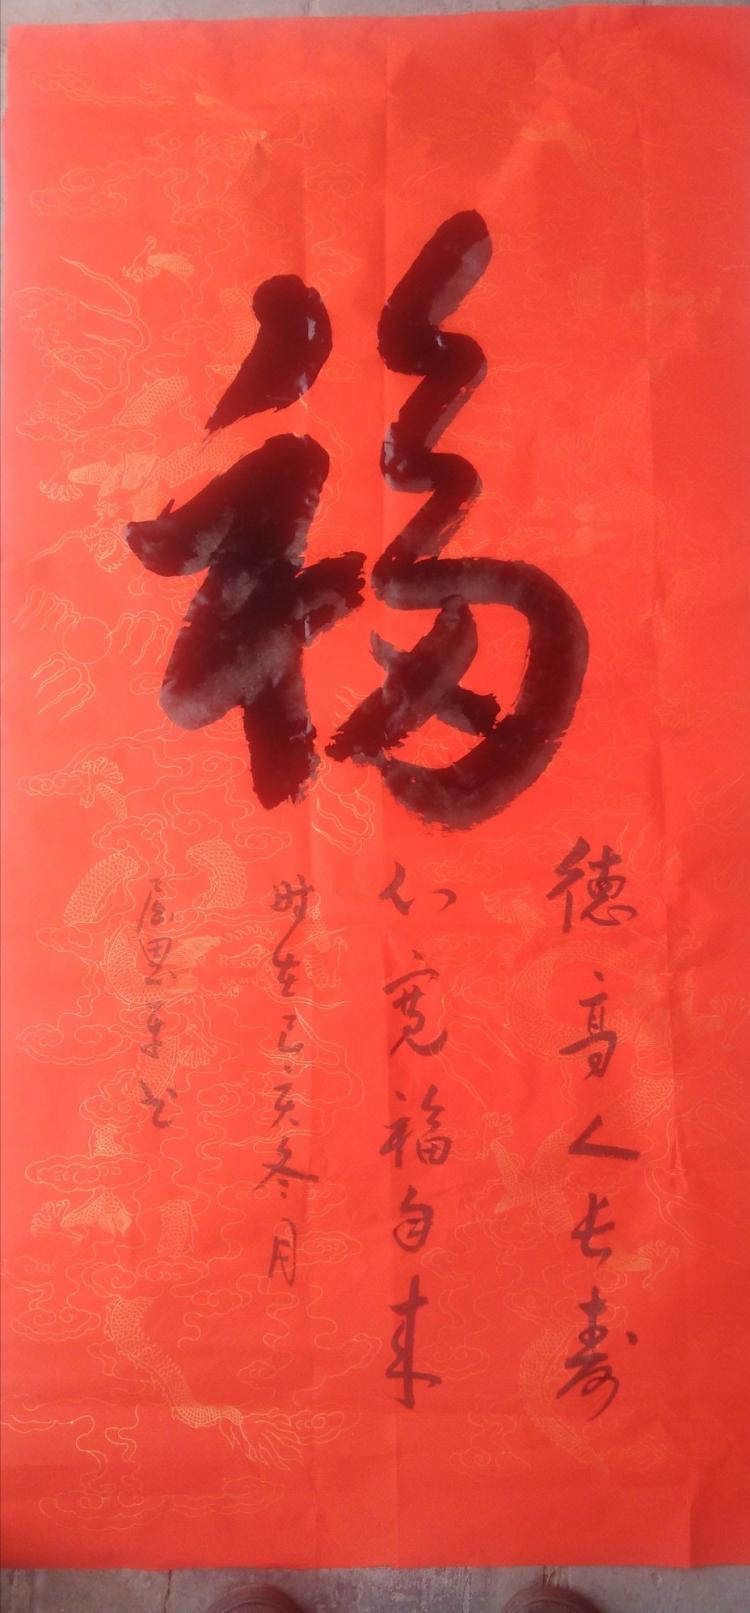 福
德高人长寿
心宽福自来
时在己亥冬月
书